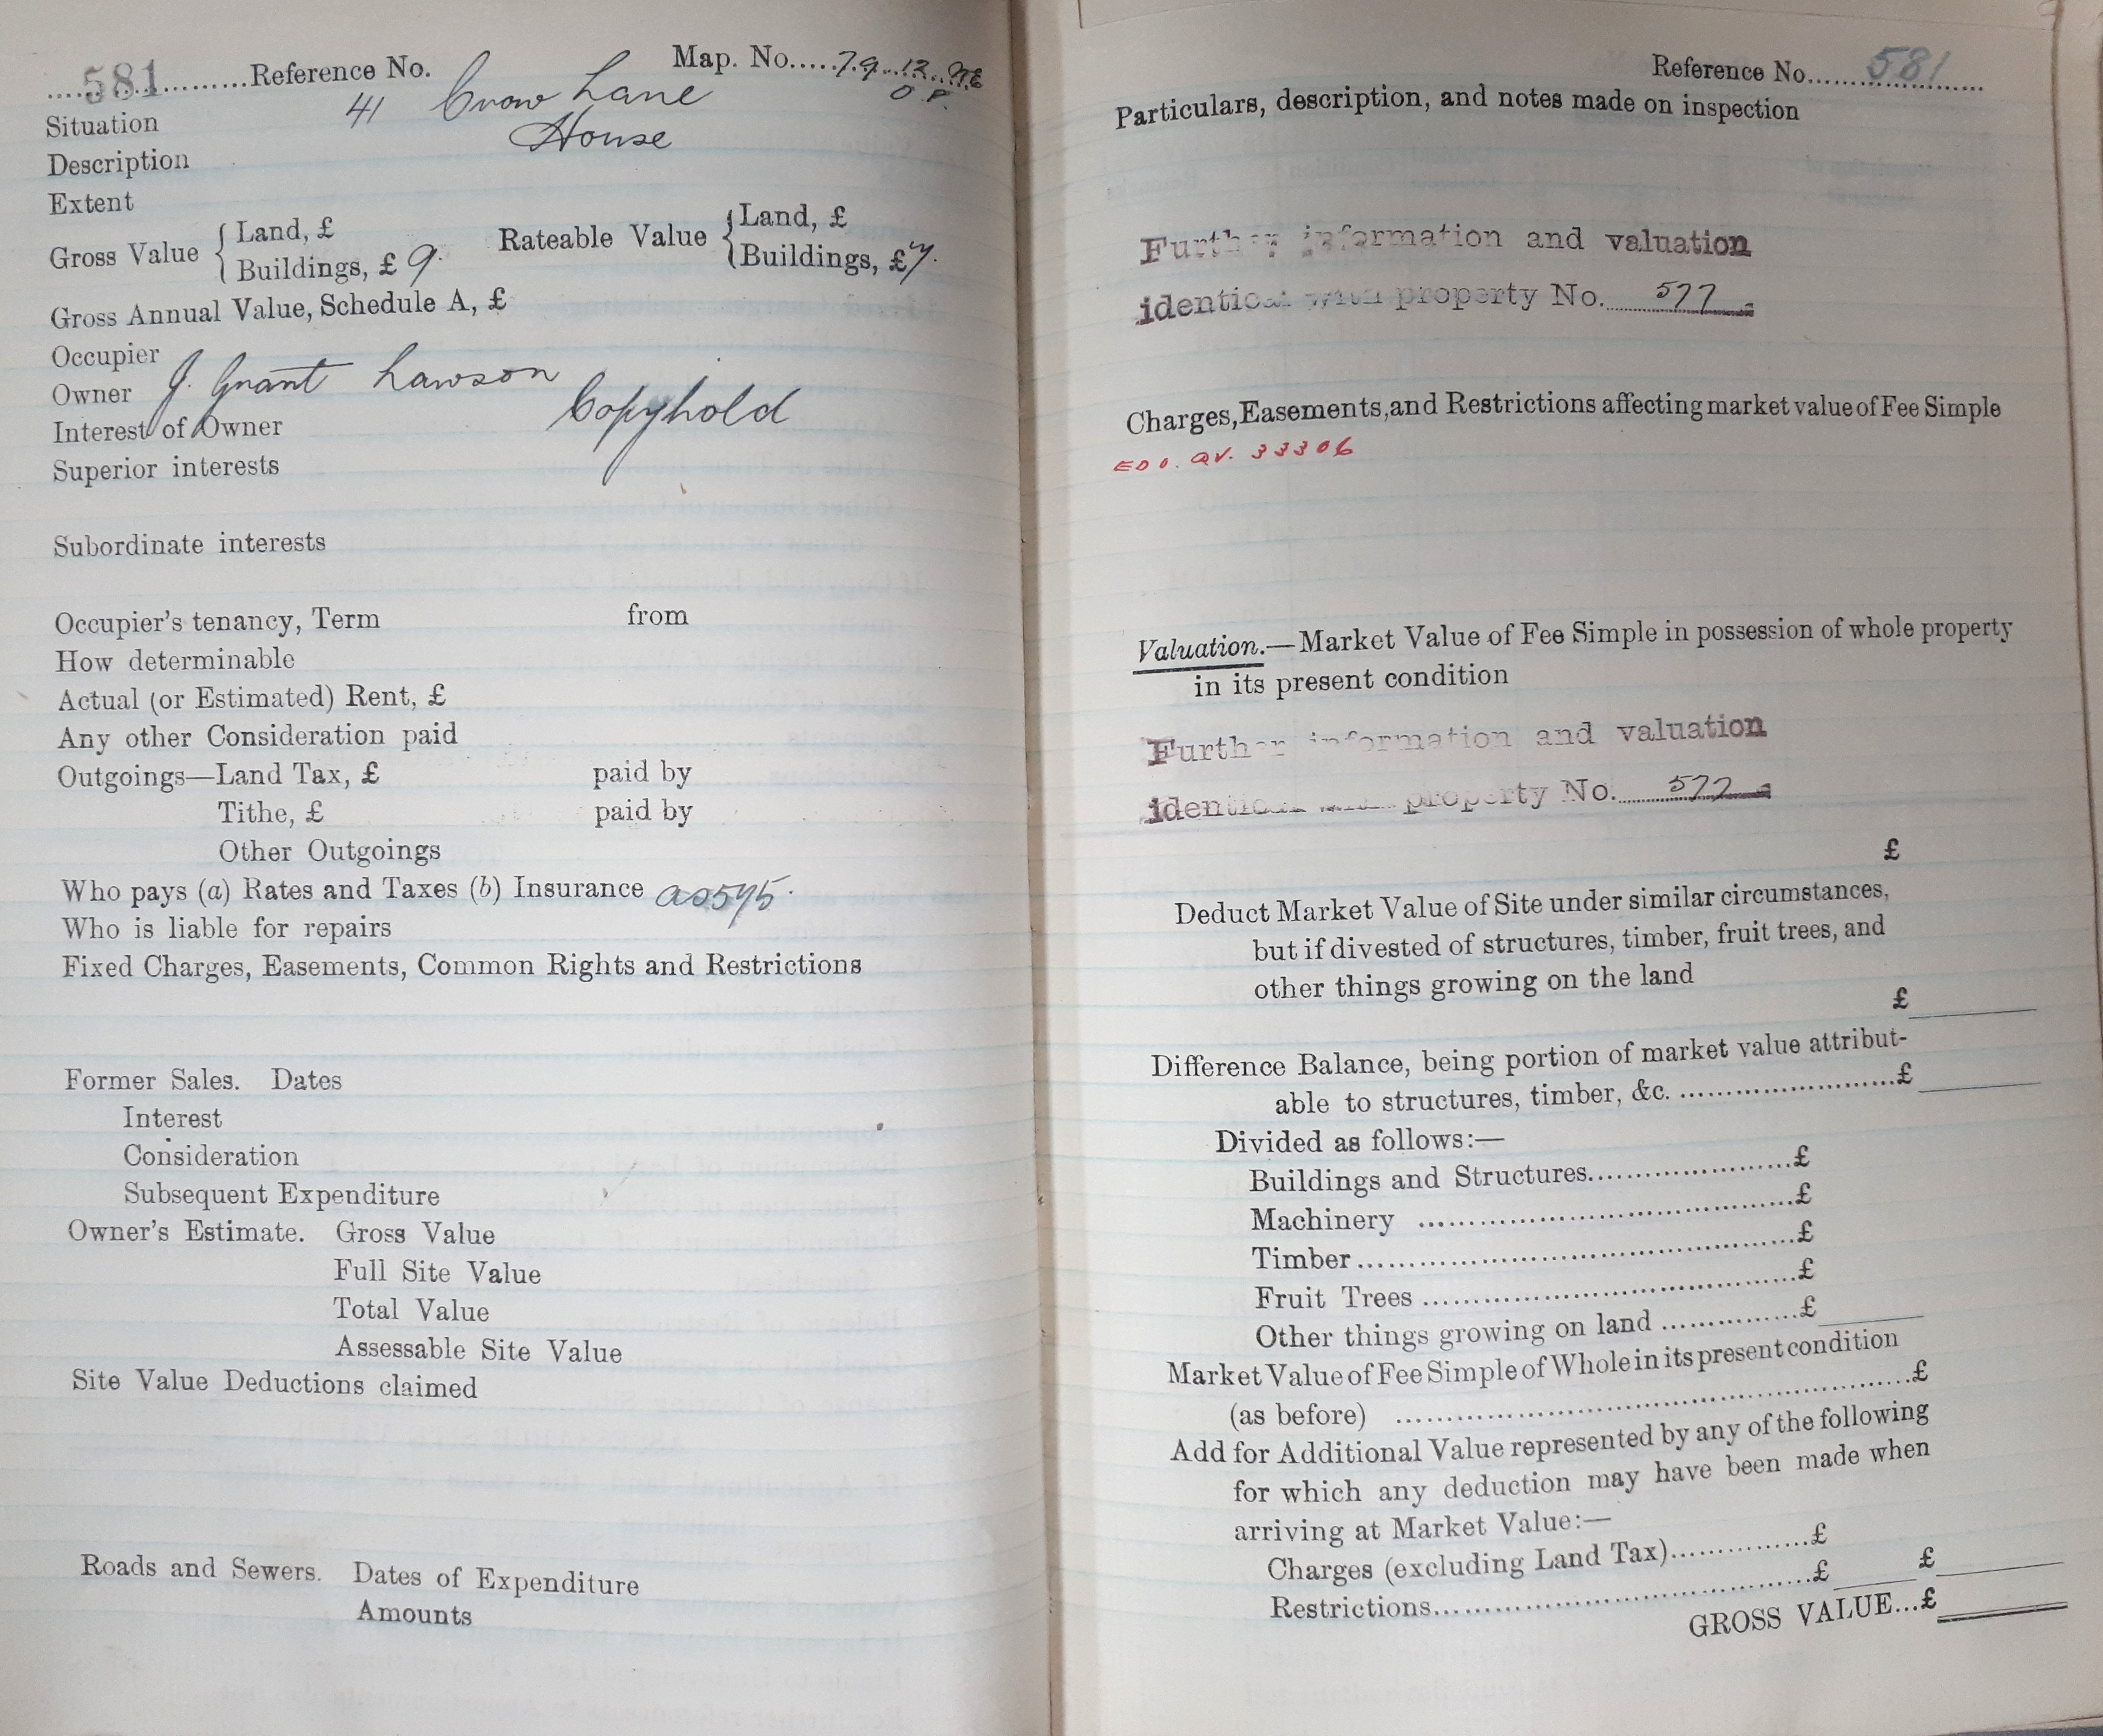 581 Reference No. Map. No. 79.12. N.E
O.P.
Situation 41 Crow Lane
Description House
Extent
Gross Value { Land, £ Rateable Value { Land, £
Buildings, £ 9. Buildings, £ 7.
Gross Annual Value, Schedule A, £
Occupier
Owner J. Grant Lawson
Interest of Owner Copyhold
Superior interests
Subordinate interests
Occupier's tenancy, Term from
How determinable
Actual (or Estimated) Rent, £
Any other Consideration paid
Outgoings—Land Tax, £ paid by
Tithe, £ paid by
Other Outgoings
Who pays (a) Rates and Taxes (b) Insurance as 575.
Who is liable for repairs
Fixed Charges, Easements, Common Rights and Restrictions
Former Sales. Dates
Interest
Consideration
Subsequent Expenditure
Owner's Estimate. Gross Value
Full Site Value
Total Value
Assessable Site Value
Site Value Deductions claimed
Roads and Sewers. Dates of Expenditure
Amounts
Reference No. 581
Particulars, description, and notes made on inspection
Further information and valuation
identical with property No. 577
Charges, Easements, and Restrictions affecting market value of Fee Simple
33306
Valuation.—Market Value of Fee Simple in possession of whole property
in its present condition
Further information and valuation
identical with property No. 577
£
Deduct Market Value of Site under similar circumstances,
but if divested of structures, timber, fruit trees, and
other things growing on the land
£
Difference Balance, being portion of market value attribut-
able to structures, timber, &c. £
Divided as follows:—
Buildings and Structures £
Machinery £
Timber £
Fruit Trees £
Other things growing on land £
Market Value of Fee Simple of Whole in its present condition
(as before) £
Add for Additional Value represented by any of the following
for which any deduction may have been made when
arriving at Market Value:—
Charges (excluding Land Tax) £
Restrictions £ £
GROSS VALUE...£